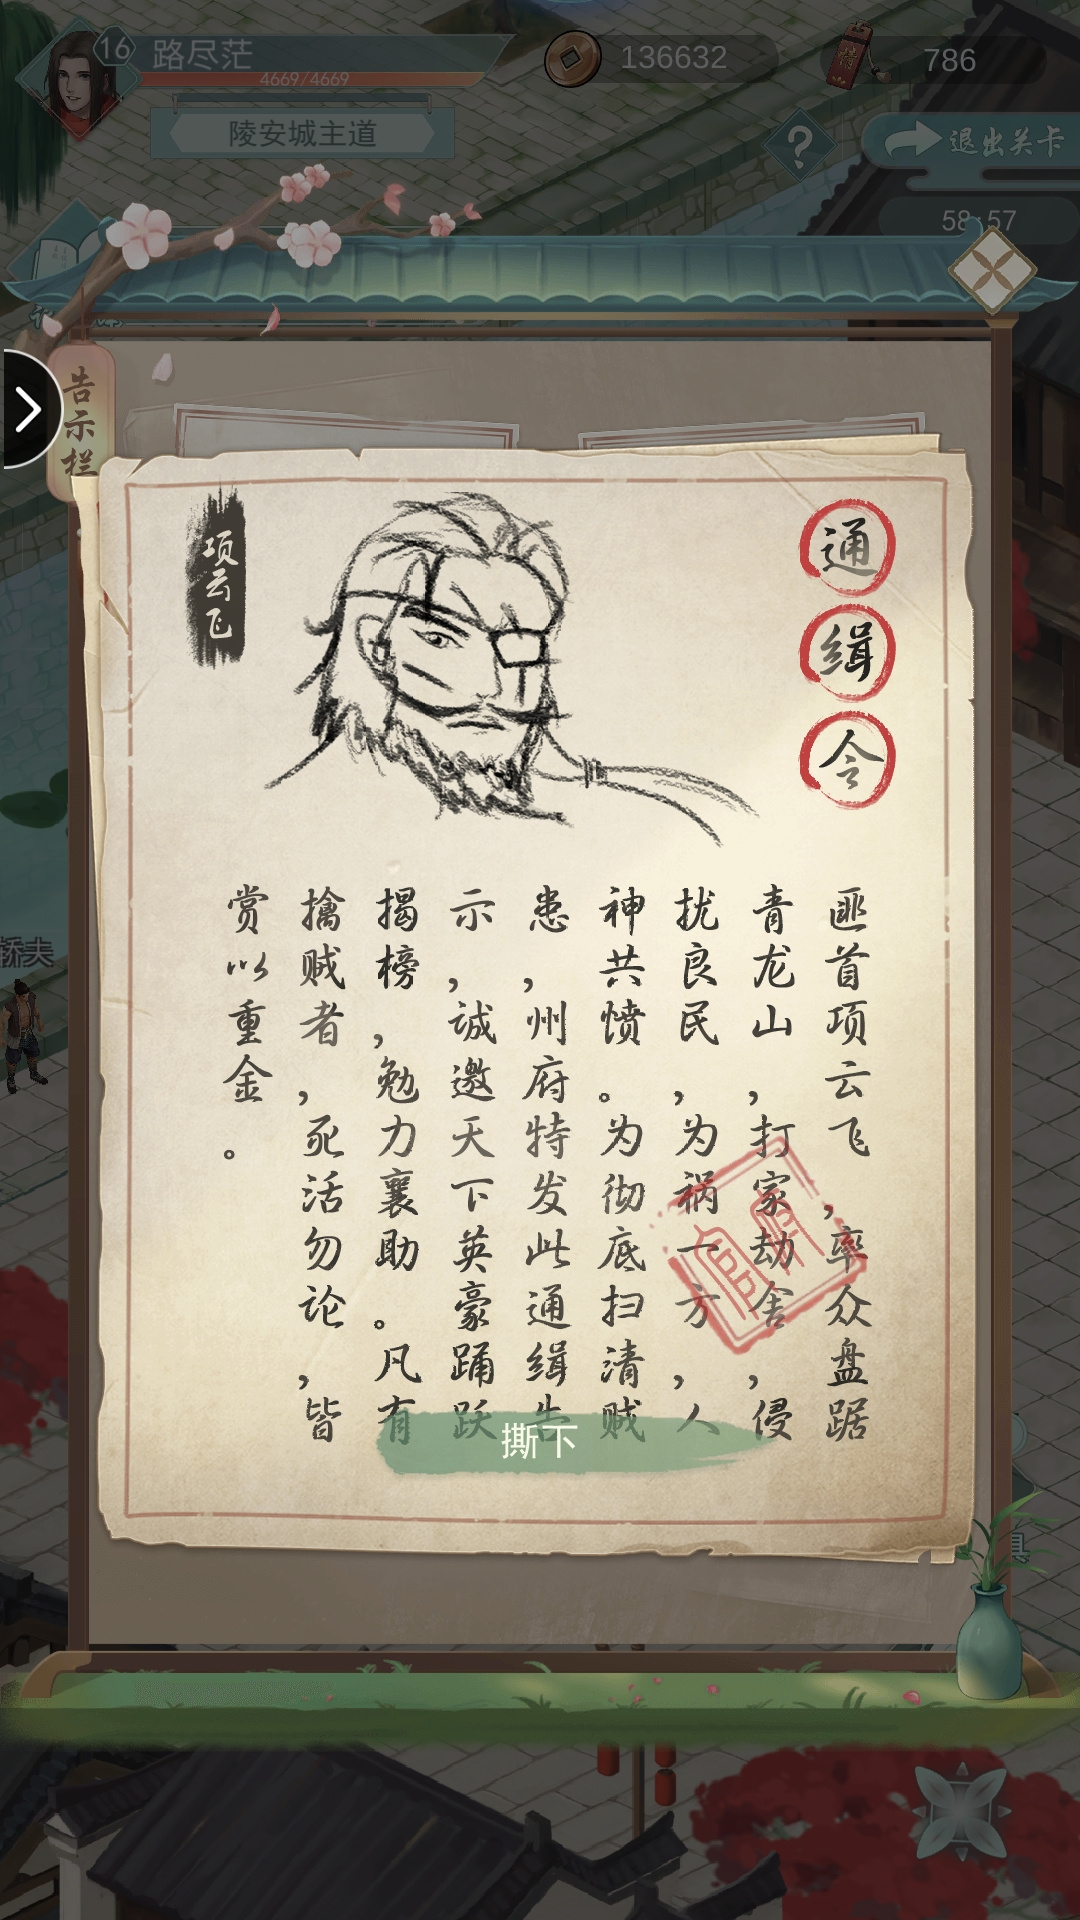 16
路尽茫
4669/4669
陵安城主道
136632
786
?
退出关卡
58:57
告示栏
通缉令
项云飞
匪首项云飞，率众盘踞
青龙山，打家劫舍，侵
扰良民，为祸一方，人
神共愤。为彻底扫清贼
患，州府特发此通缉告
示，诚邀天下英豪踊跃
揭榜，勉力襄助。凡有
擒贼者，死活勿论，皆
赏以重金。
撕下
轿夫